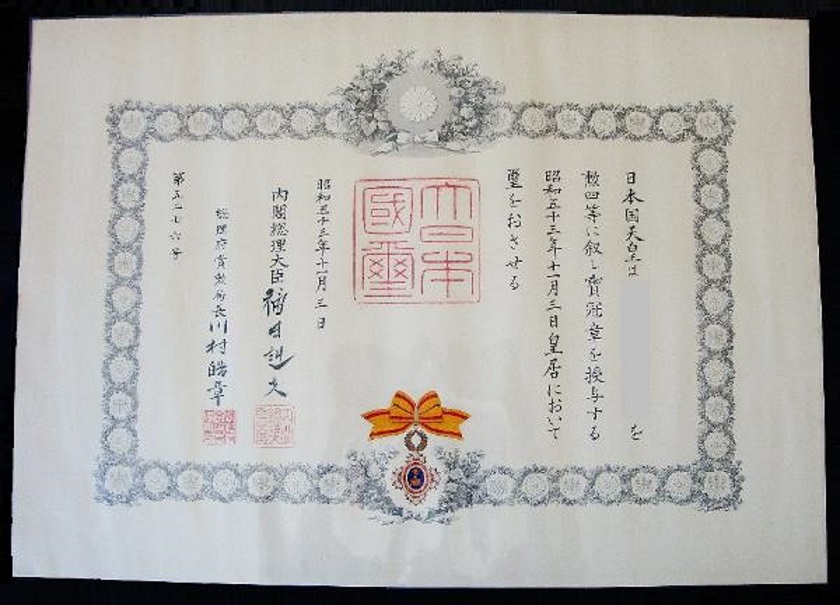 日本国天皇は　　を
勲四等に叙し寶冠章を授与する
昭和五十三年十一月三日皇居において
璽をおさせる
大日本國璽
昭和五十三年十一月三日
内閣総理大臣 福田赳夫
総理府賞勲局長 川村皓章
第五二七六号